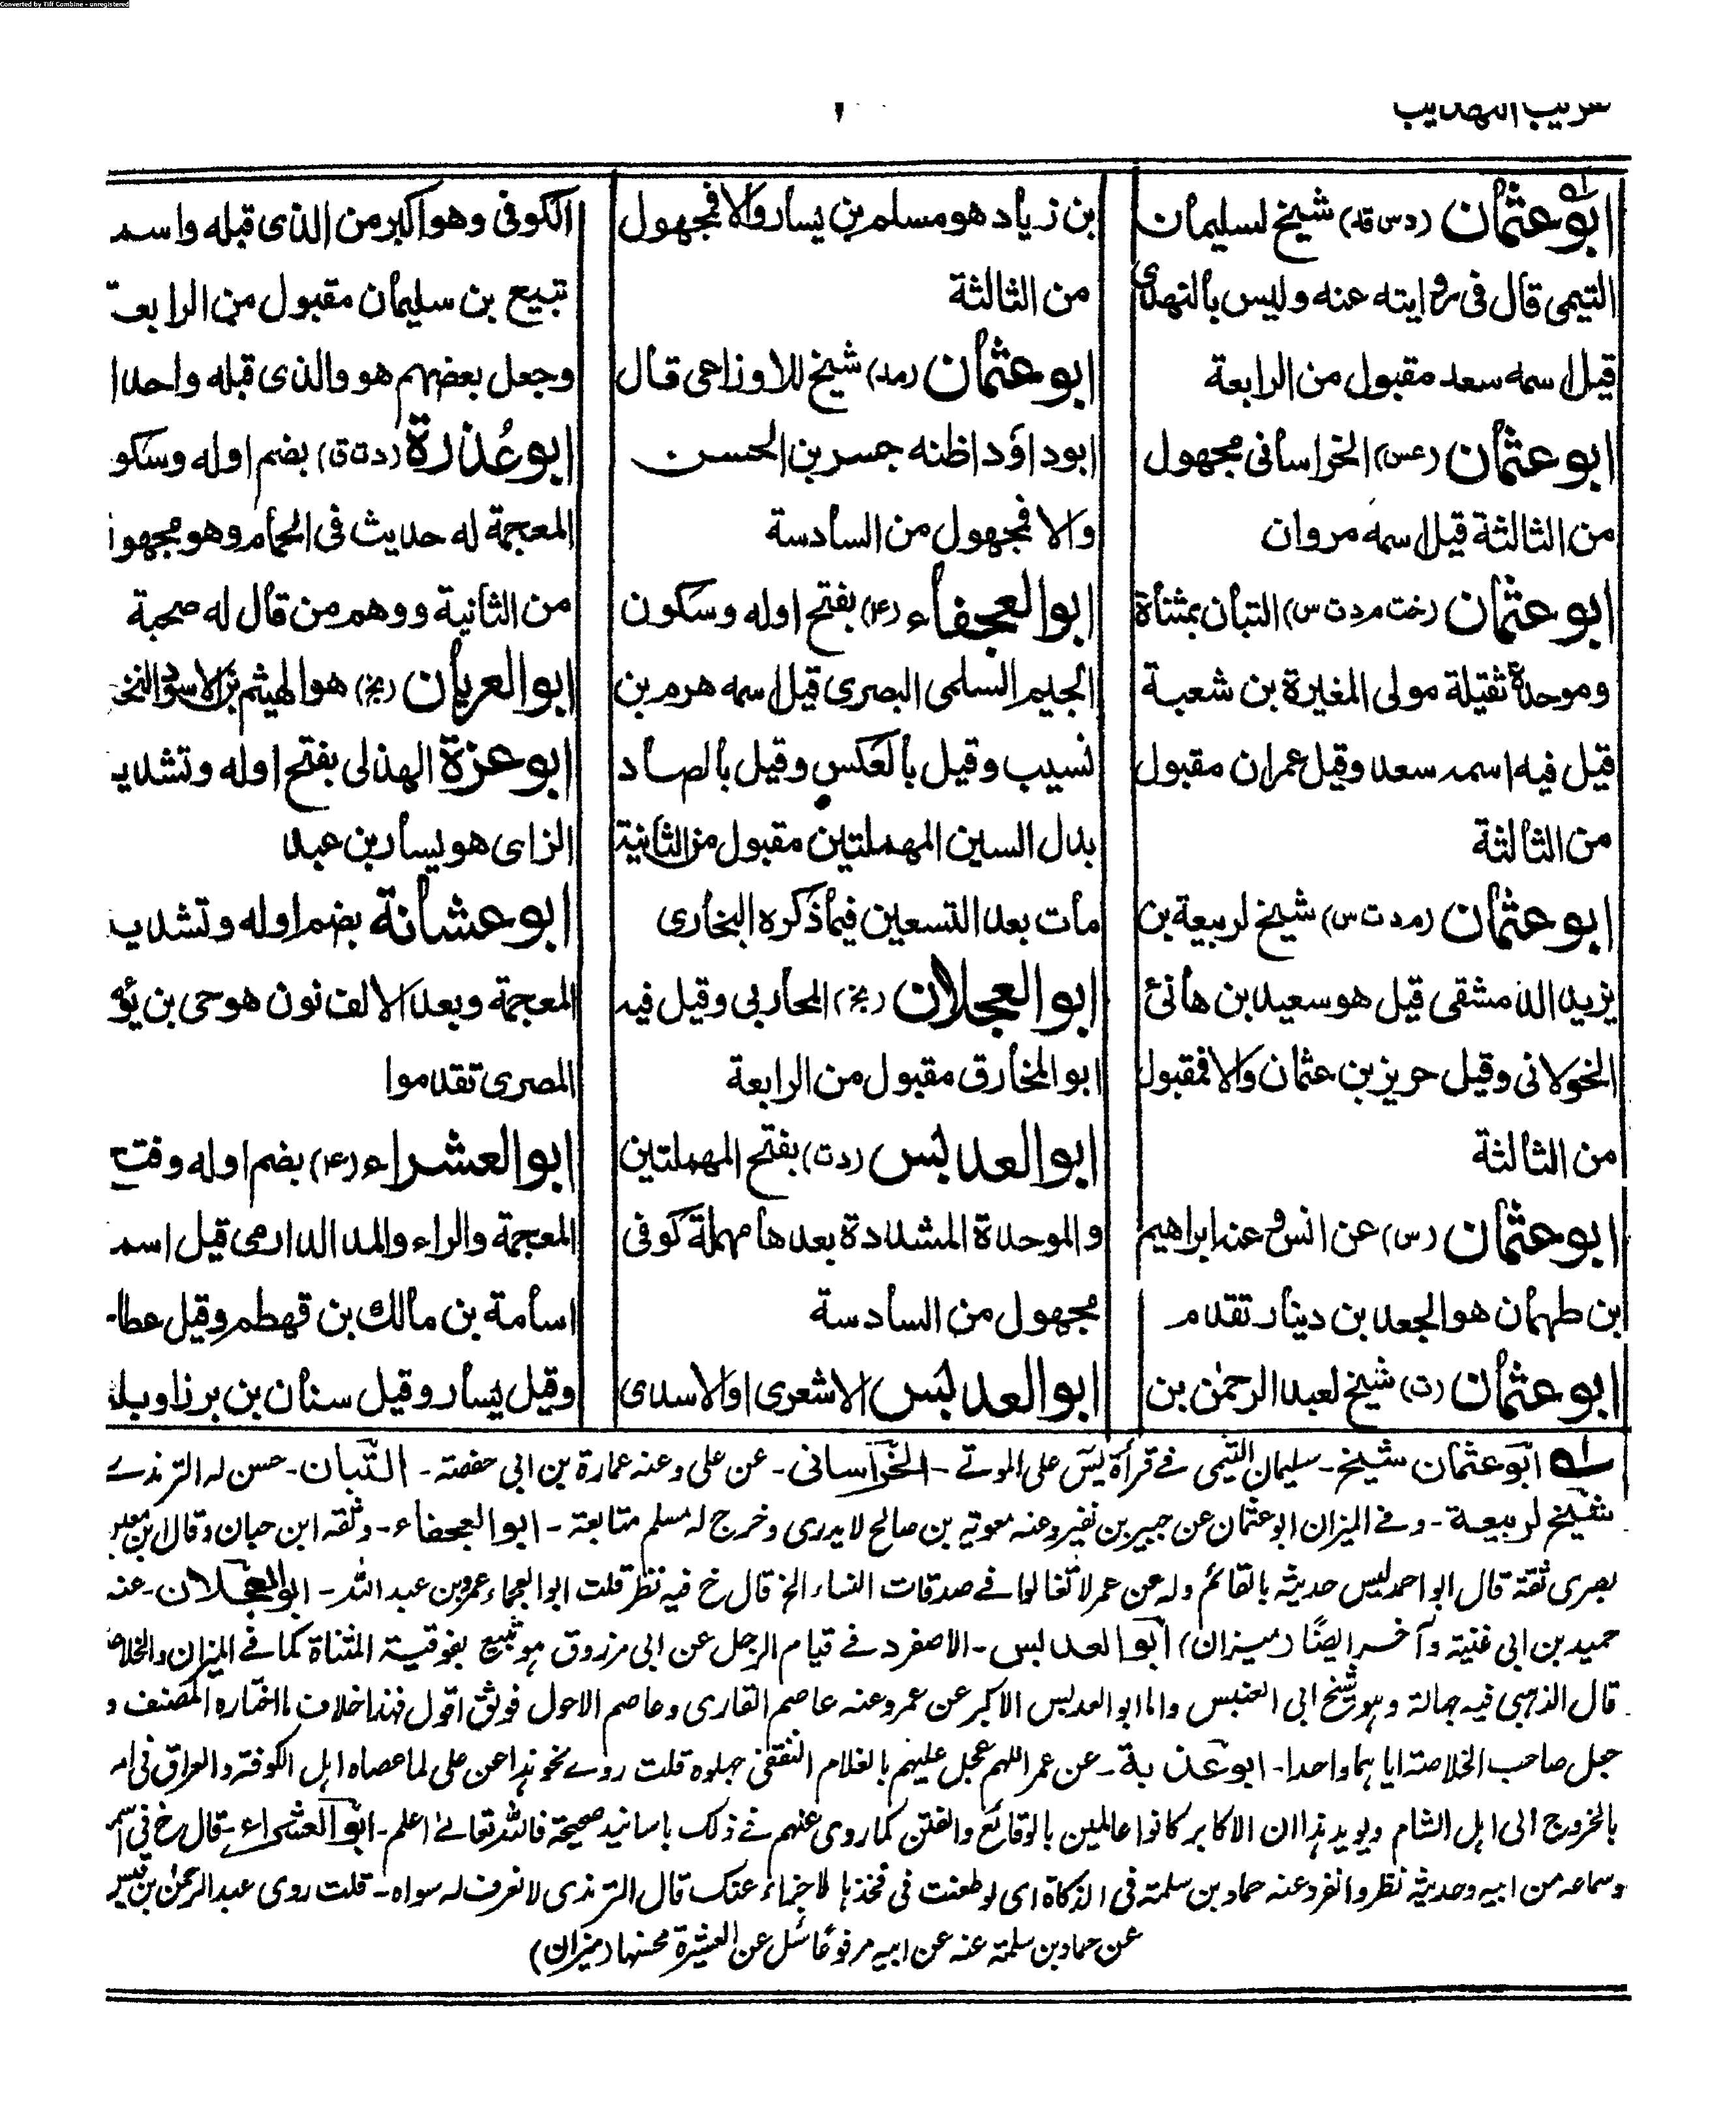 Converted by Tiff Combine - unregistered
تقريب التهذيب
ابو عثمان (د س قه) شيخ لسليمان
التيمى قال فى روايته عنه وليس بالنهدى
قيل اسمه سعد مقبول من الرابعة
ابو عثمان (عس) الخراسانى مجهول
من الثالثة قيل اسمه مروان
ابو عثمان (خت م د ت س) التبان بمثناة
وموحدة ثقيلة مولى المغيرة بن شعبة
قيل فيه اسمه سعد وقيل عمران مقبول
من الثالثة
ابو عثمان (م د ت س) شيخ لربيعة بن
يزيد الدمشقى قيل هو سعيد بن هانئ
الخولانى وقيل حريز بن عثمان والا فمقبول
من الثالثة
ابو عثمان (س) عن انس وعنه ابراهيم
ابن طهمان هو الجعد بن دينار تقدم
ابو عثمان (ت) شيخ لعبد الرحمن بن
بن زياد هو مسلم بن يسار والا فمجهول
من الثالثة
ابو عثمان (مد) شيخ للاوزاعى قال
ابو داؤد اظنه جسر بن الحسن
والا فمجهول من السادسة
ابو العجفاء (۴) بفتح اوله وسكون
الجيم السلمى البصرى قيل اسمه هرم بن
نسيب وقيل بالعكس وقيل بالصاد
بدل السين المهملتين مقبول من الثانية
مات بعد التسعين فيما ذكره البخارى
ابو العجلان (بخ) المحاربى وقيل فيه
ابو المخارق مقبول من الرابعة
ابو العدبس (د ت) بفتح المهملتين
والموحدة المشددة بعدها مهملة كوفى
مجهول من السادسة
ابو العدبس الاشعرى او الاسدى
الكوفى وهو اكبر من الذى قبله واسمه
تبيع بن سليمان مقبول من الرابعة
وجعل بعضهم هو والذى قبله واحدا
ابو عُذرة (د ت ق) بضم اوله وسكو
المعجمة له حديث فى الحمام وهو مجهول
من الثانية ووهم من قال له صحبة
ابو العريان (بخ) هو الهيثم بن الاسود النخ
ابو عزة الهذلى بفتح اوله وتشديد
الزاى هو يسار بن عبد
ابو عشانة بضم اوله وتشديد
المعجمة وبعد الالف نون هو حى بن يؤ
المصرى تقدموا
ابو العشراء (۴) بضم اوله وفتح
المعجمة والراء والمد الدارمى قيل اسمه
اسامة بن مالك بن قهطم وقيل عطا
وقيل يسار وقيل سنان بن برز او بلز
ابو عثمان شيخ - سليمان التيمى فے قرأة يس على الموتے - الخراسانى - عن على وعنه عمارة بن ابى حفصة - التبان - حسن له الترمذے
شيخ لربيعة - وفے الميزان ابو عثمان عن جبير بن نفير وعنه معوية بن صالح لا يدرى وخرج له مسلم متابعة - ابو العجفاء - وثقه ابن حبان وقال ابن معين
بصرى ثقة قال ابو احمد ليس حديثه بالقائم وله عن عمر لا تغالوا فے صدقات النساء الخ قال خ فيه نظر قلت ابو العجماء عمرو بن عبد الله - ابو العجلان - عنه
حميد بن ابى غنية وآخر ايضًا (ميزان) ابو العدبس - الاصغر د فے قيام الرجل عن ابى مرزوق هو تبيع بفوقية المثناة كما فے الميزان والخلاصة
قال الذهبى فيه جهالة وهو شيخ ابى العنبس واما ابو العدبس الاكبر عن عمر وعنه عاصم القارى وعاصم الاحول فوثق اقول فهذا خلاف ما اختاره المصنف و
جعل صاحب الخلاصة اياهما واحدا - ابو عذبة - عن عمر اللهم عجل عليهم بالغلام الثقفى جهلوه قلت روے نحو هذا عن على لما عصاه اهل الكوفة والعراق فى امره
بالخروج الى اهل الشام ويؤيد هذا ان الاكابر كانوا عالمين بالوقائع والفتن كما روى عنهم فے ذلك باسانيد صحيحة فالله تعالے اعلم - ابو العشراء - قال خ فى اسمه
وسماعه من ابيه وحديثه نظر وانفرد عنه حماد بن سلمة فى الذكاة اى لو طعنت فى فخذها لاجزاء عنك قال الترمذى لا نعرف له سواه - قلت روى عبد الرحمن بن قيس
عن حماد بن سلمة عنه عن ابيه مرفوعا سئل عن العتيرة فحسنها (ميزان)